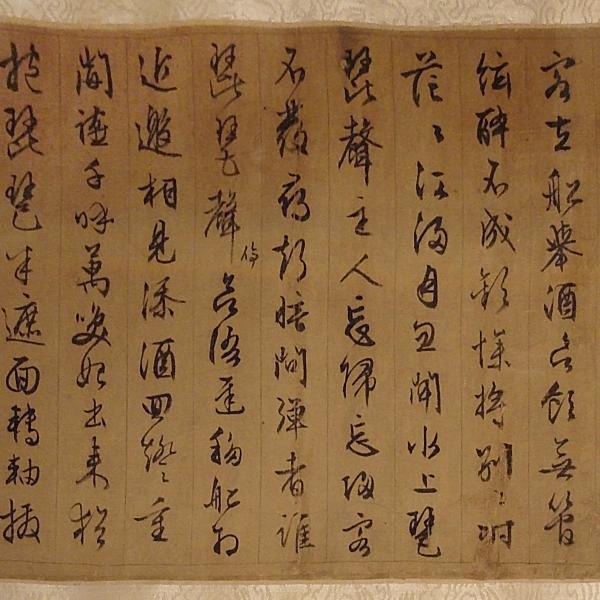 客在船舉酒欲飲無管
絃醉不成歡慘將別〻時
茫〻江浸月忽聞水上琵
琶聲主人忘歸忘歸客
不發尋聲暗問彈者誰
琵琶聲停欲語遲移船相
近邀相見添酒回燈〻重
開讌千呼萬喚始出來猶
抱琵琶半遮面轉軸撥